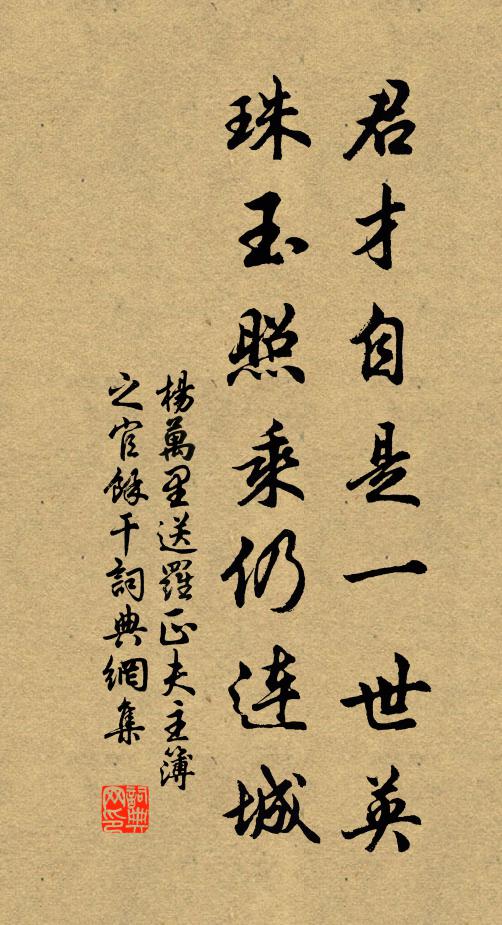 君才自是一世英
珠玉照乘仍連城
楊萬里送羅正夫主簿
之官餘干詞典網集
詞典
网印